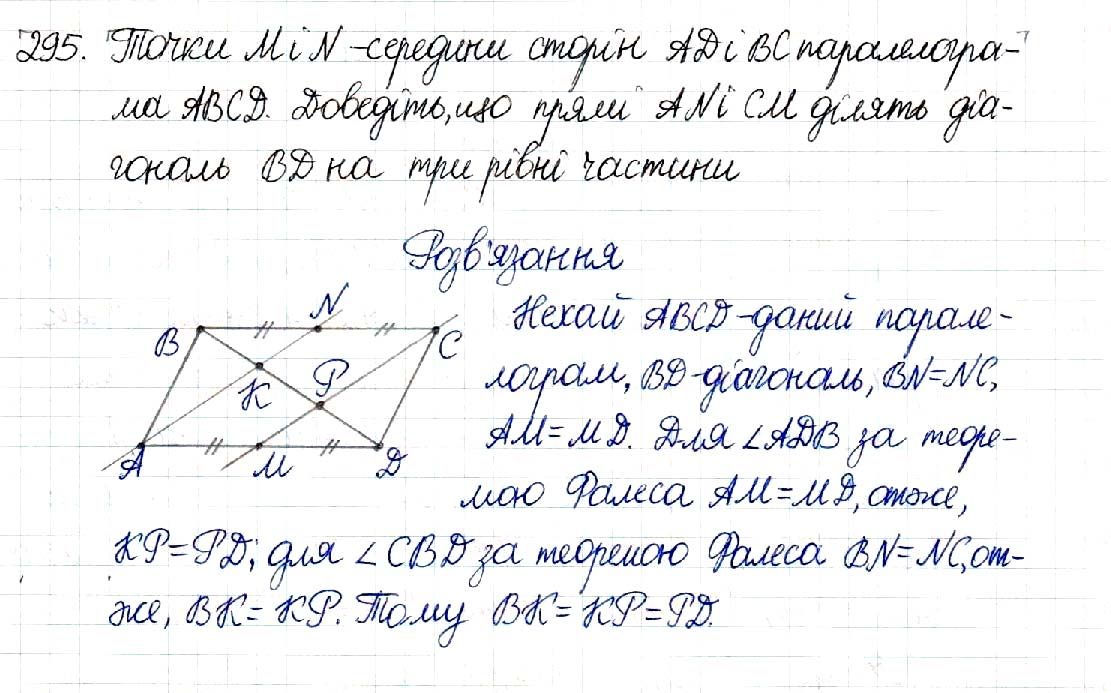 295. Точки M і N - середини сторін AD і BC паралелогра-
ма ABCD. Доведіть, що прямі AN і CM ділять діа-
гональ BD на три рівні частини
Розв'язання
N
B
C
K
P
A
M
D
Нехай ABCD - даний парале-
лограм, BD - діагональ, BN = NC,
AM = MD. Для ∠ADB за теоре-
мою Фалеса AM = MD, отже,
KP = PD; для ∠CBD за теоремою Фалеса BN = NC, от-
же, BK = KP. Тому BK = KP = PD.